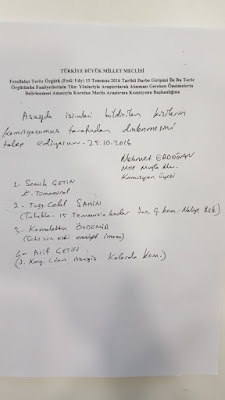 TÜRKİYE BÜYÜK MİLLET MECLİSİ
Fethullahçı Terör Örgütü (Fetö/Pdy) 15 Temmuz 2016 Tarihli Darbe Girişimi İle Bu Terör
Örgütünün Faaliyetlerinin Tüm Yönleriyle Araştırılarak Alınması Gereken Önlemlerin
Belirlenmesi Amacıyla Kurulan Meclis Araştırma Komisyonu Başkanlığına
Aşağıda isimleri bildirilen kişilerin
komisyonumuz tarafından dinlenmesini
talep ediyorum. 25.10.2016
Mehmet ERDOĞAN
MHP Muğla
Komisyon Üyesi
1- Semih ÇETİN
E. Tümamiral
2- Tuğg. Celal ŞAHİN
(Tutuklu - 15 Temmuza kadar Jan. G. Kom.
3- Kemalettin
(Fetö'nün eski emniyet imamı)
4- Arif ÇETİN
(J. Kom.)